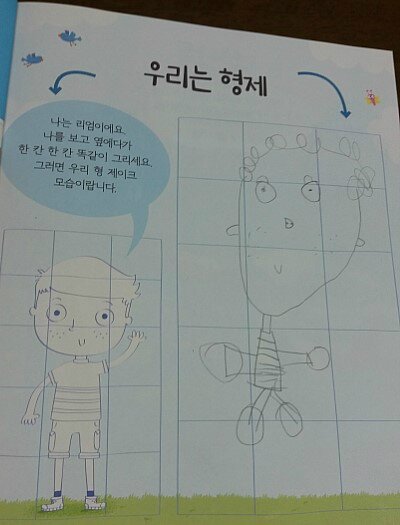 우리는 형제
나는 리엄이에요.
나를 보고 옆에다가
한 칸 한 칸 똑같이 그리세요.
그러면 우리 형 제이크
모습이랍니다.